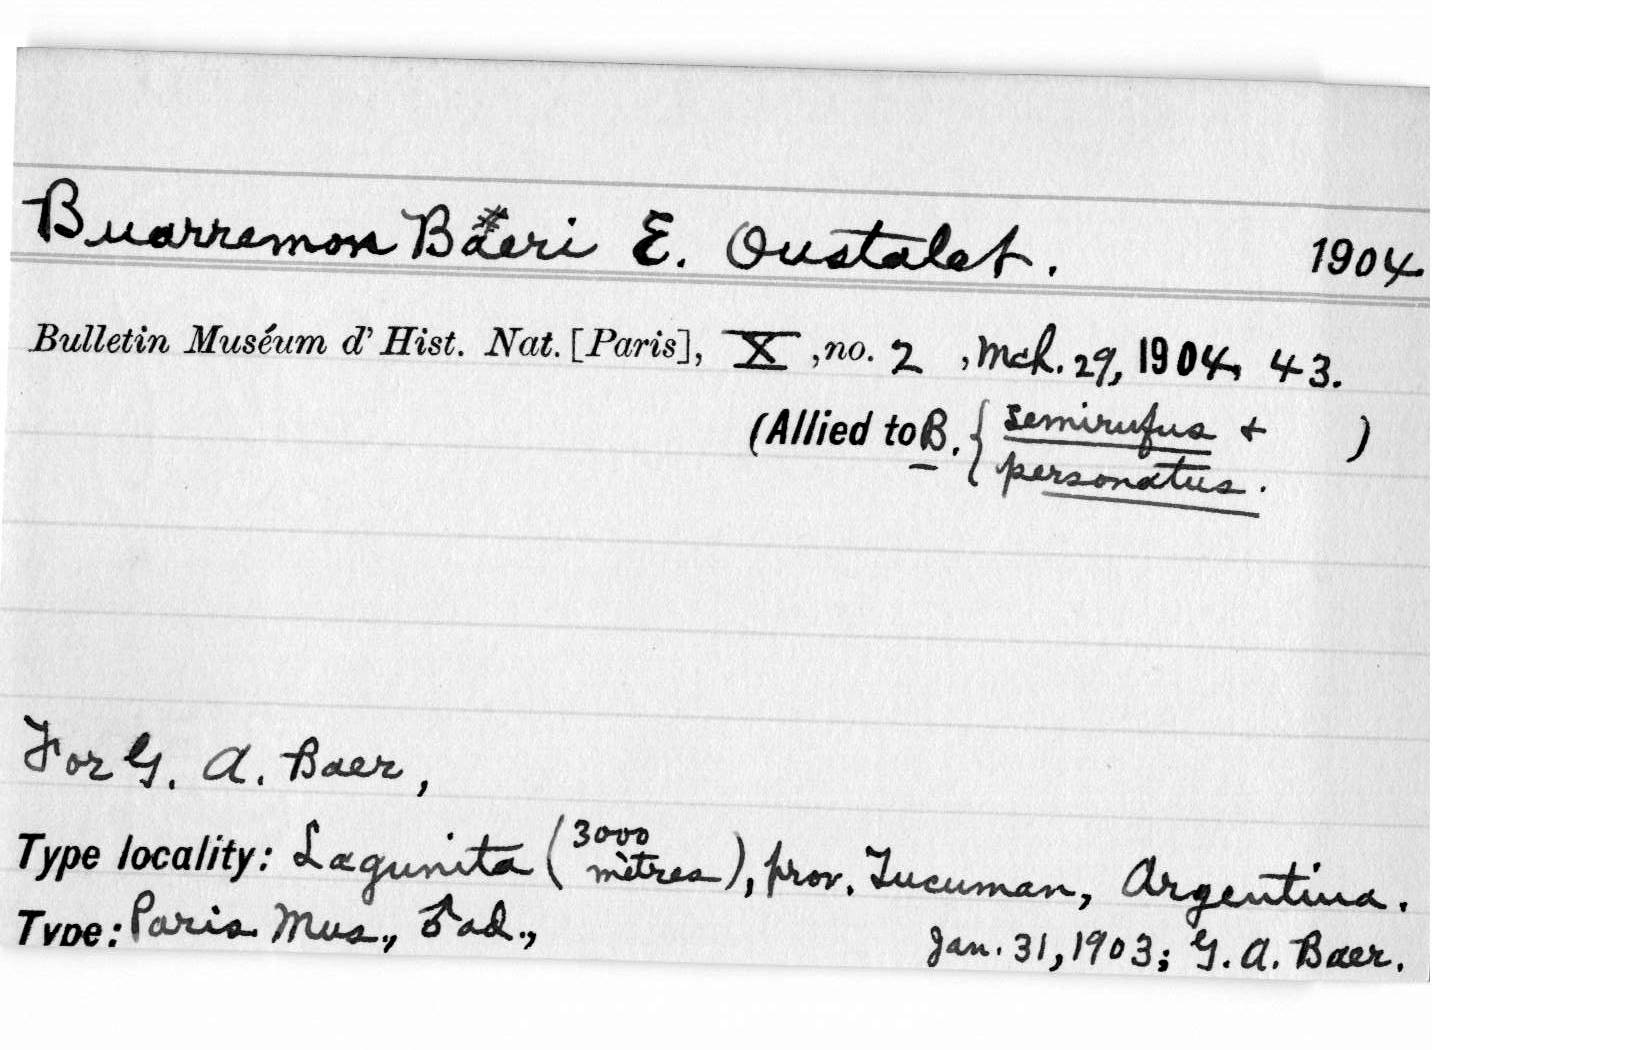 Buarremon Baeri E. Oustalet. 1904
Bulletin Muséum d' Hist. Nat. [Paris], X, no. 2, Mch. 29, 1904, 43.
(Allied to B. { semirufus + )
personatus.
For G. A. Baer,
Type locality: Lagunita (3000 mètres), prov. Tucuman, Argentina.
Type: Paris Mus., ♂ ad., Jan. 31, 1903; G. A. Baer.